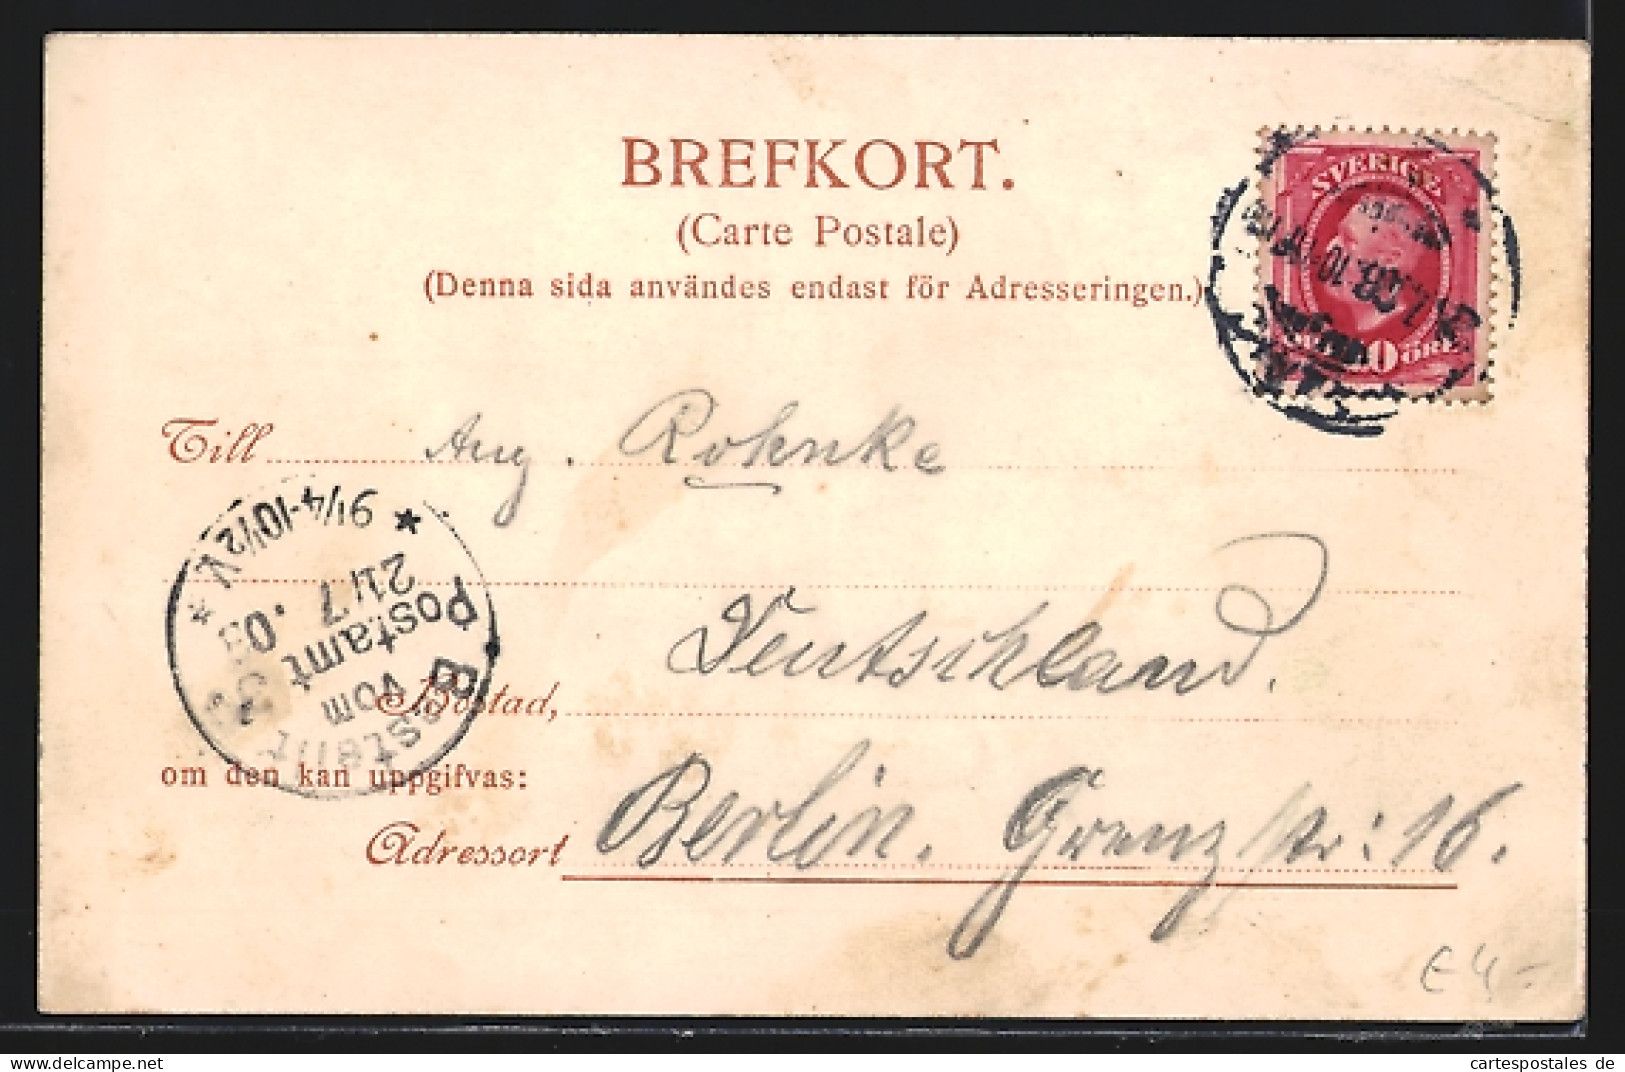 BREFKORT.
(Carte Postale)
(Denna sida användes endast för Adresseringen.)
SVERIGE
ÖRE
Till Aug. Rohnke
* 9 1/4-10 1/2 V *
21/7 .03
Postamt
vom
Bestellt
Deutschland.
Bostad,
om den kan uppgifvas:
Adressort Berlin. Grenzstr: 16.
€ 4,-
cartespostales de